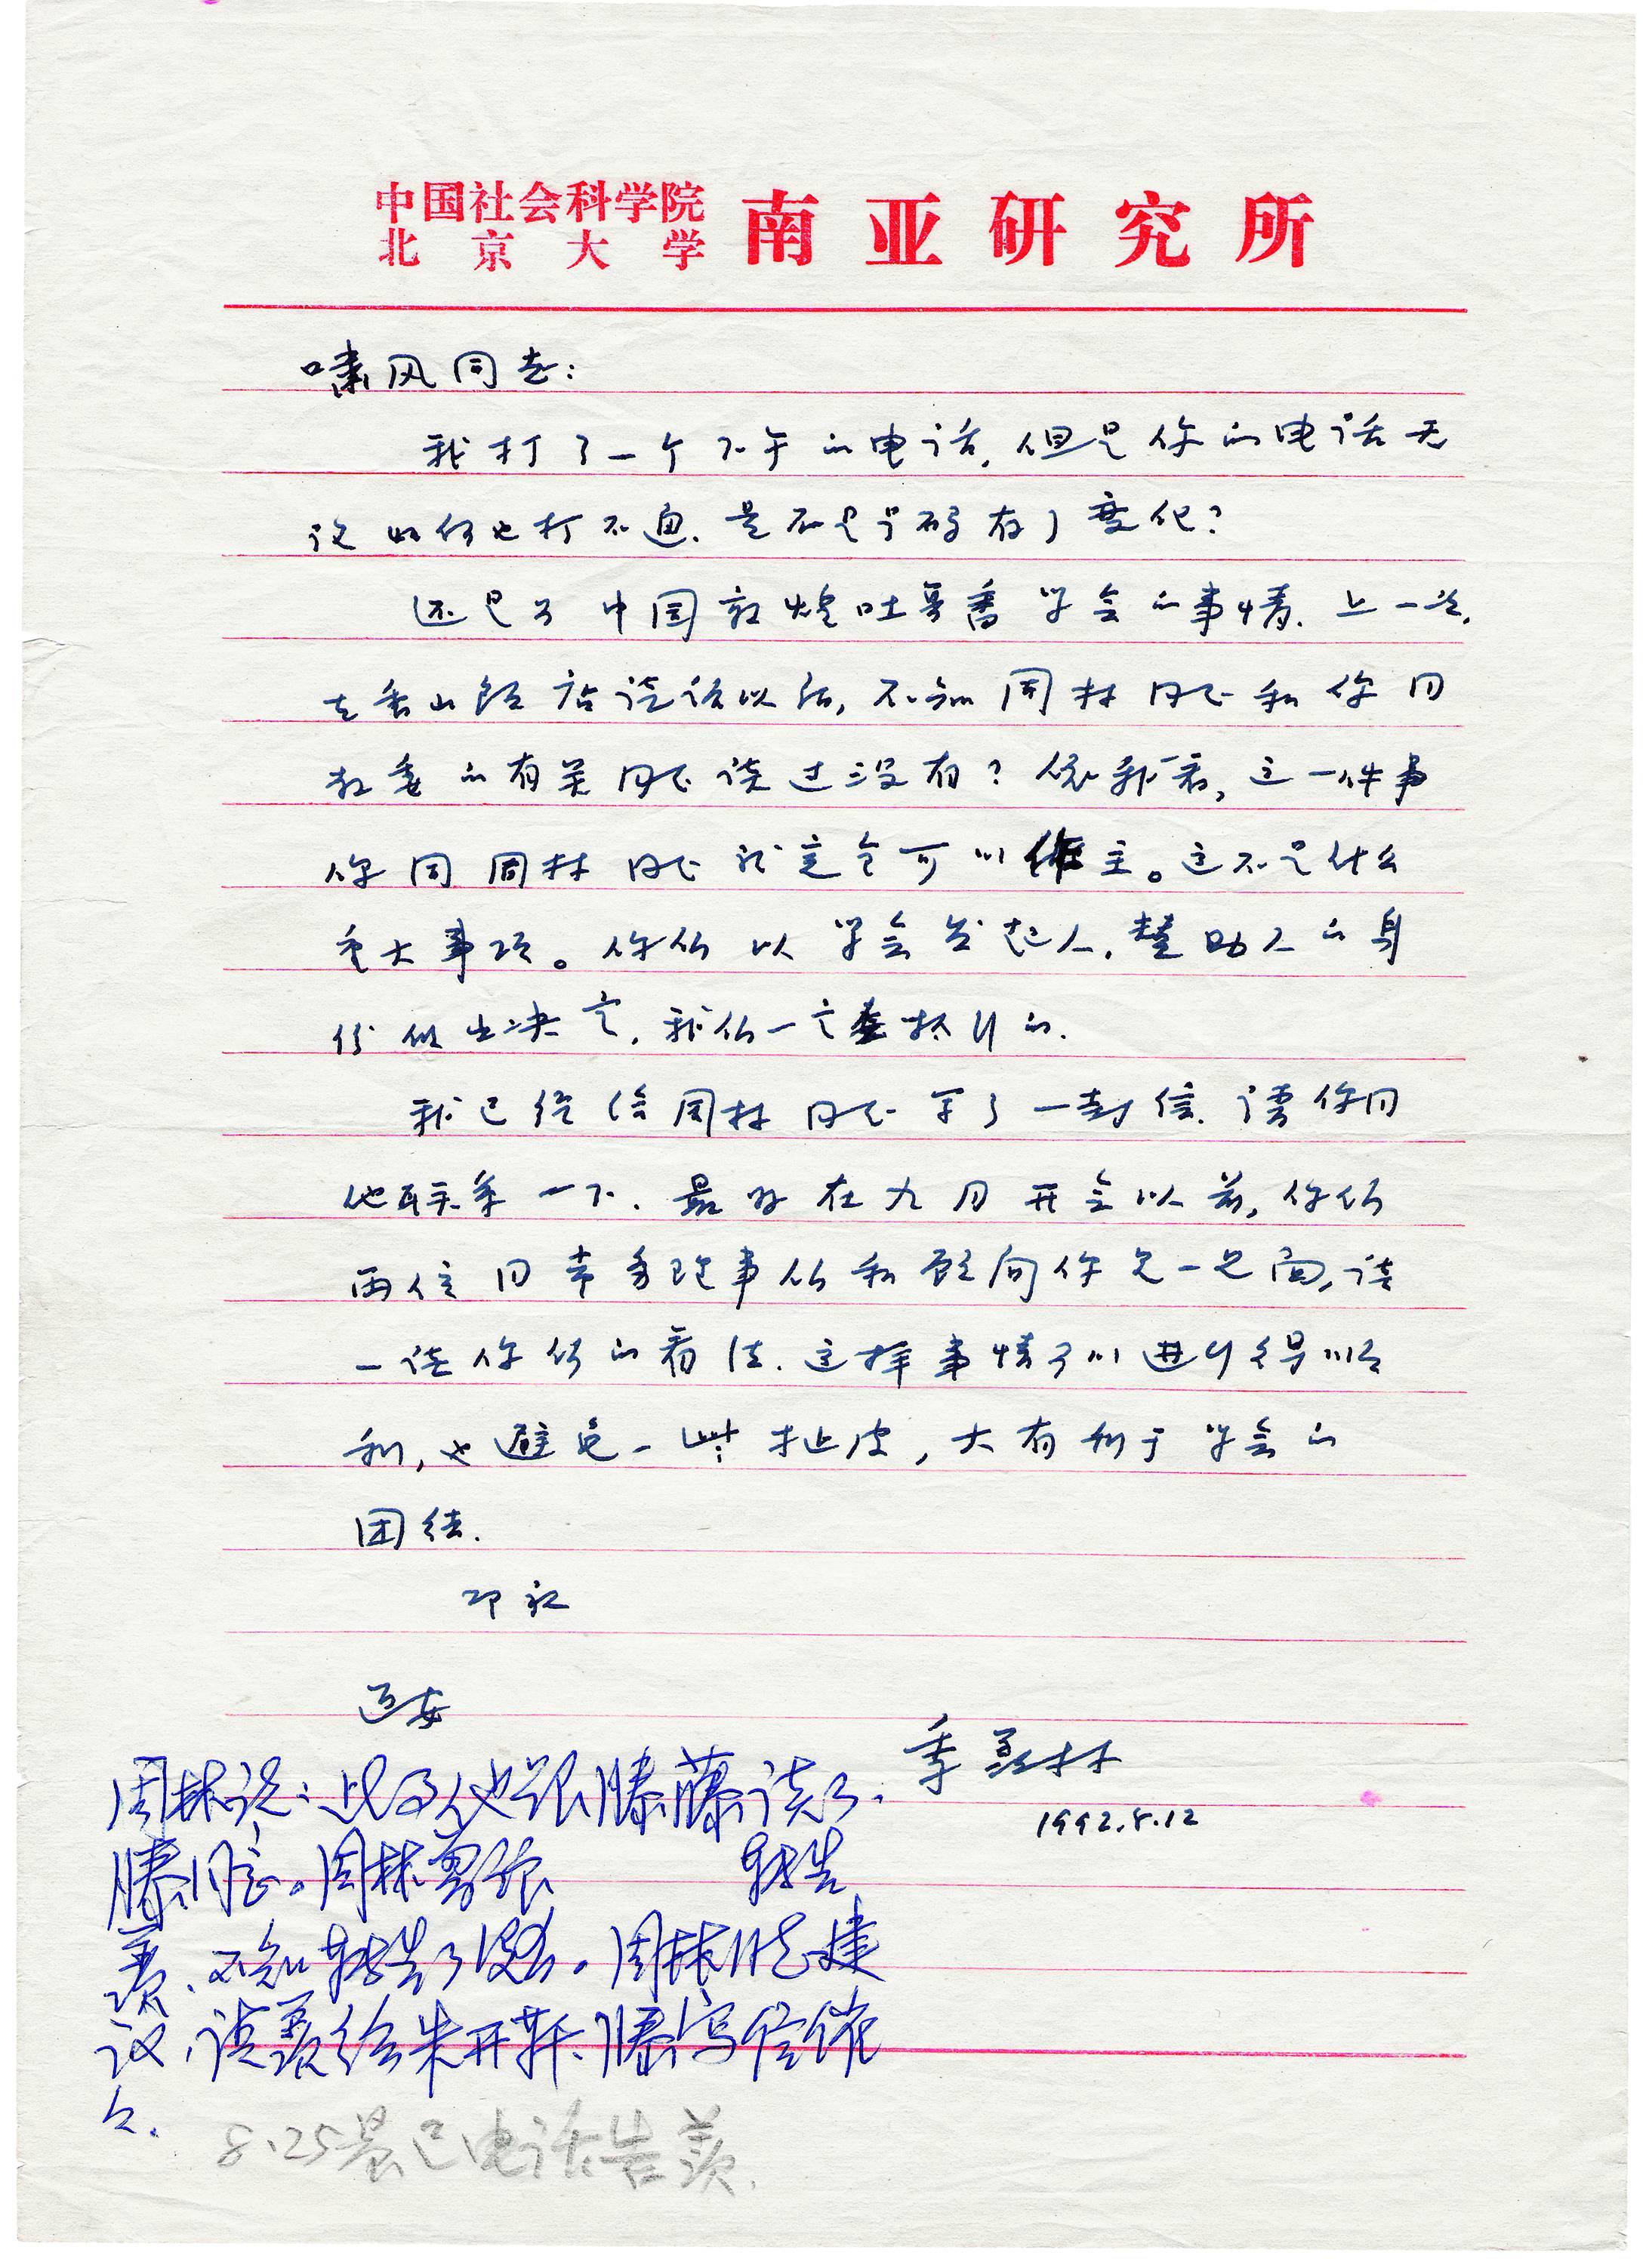 中国社会科学院
北京大学
南亚研究所
啸风同志：
我打了一个下午的电话，但是你的电话无
论如何也打不通，是不是号码有了变化？
还是为中国敦煌吐鲁番学会的事情，上一次
去香山饭店谈话以后，不知周林同志和你同
教委的有关同志谈过没有？依我看，这一件事
你同周林同志就完全可以作主。这不是什么
重大事项。你们以学会发起人，赞助人的身
份做出决定，我们一定要执行的。
我已经给周林同志写了一封信，请你同
他联系一下，最好在九月开会以前，你们
两位同常务理事们和顾问们见一见面，谈
一谈你们的看法，这样事情可以进行得顺
利，也避免一些扯皮，大有利于学会的
团结。
即祝
近安
季羡林
1992.8.12
周林说：此事他跟滕藤谈了。
滕同意。周林要张 转告
羡，不知转告了没有。周林同志建
议，请羡给朱开轩、滕写信催
之。
8.25晨已电话告羡。